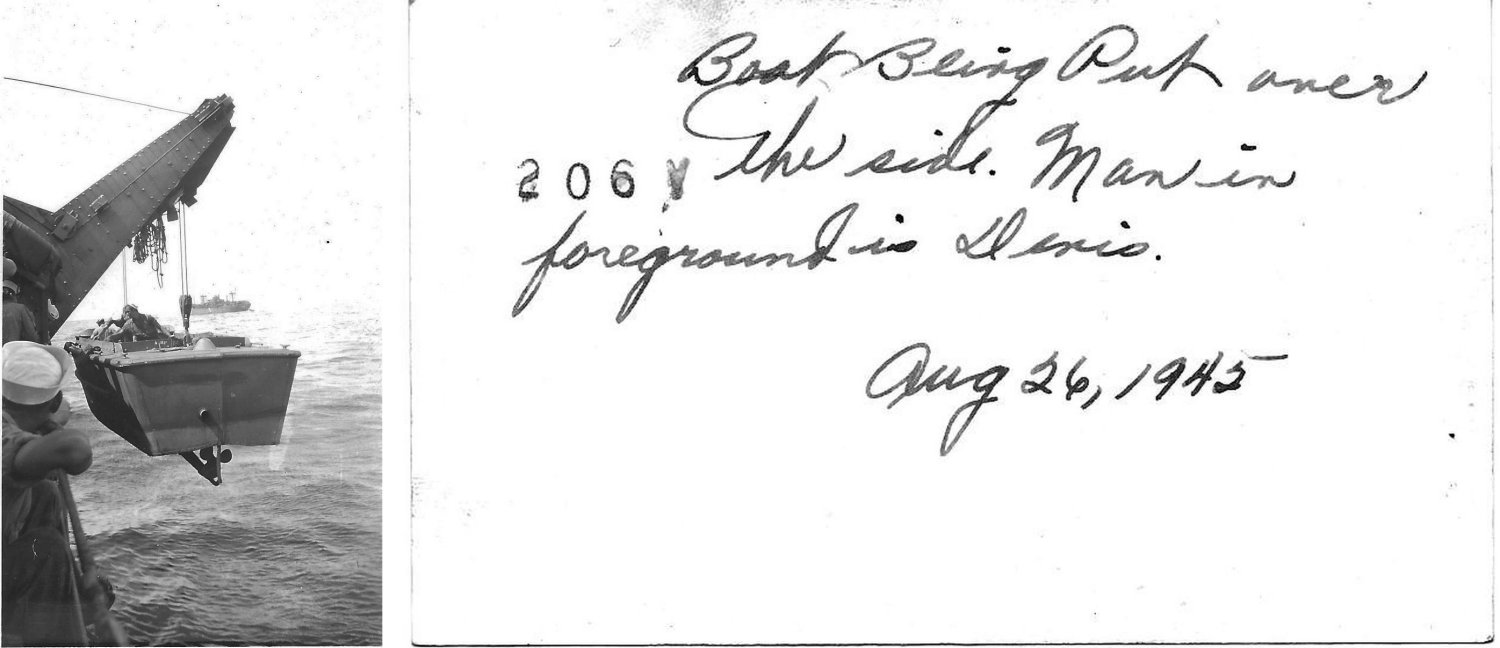 Boat Being Put over
206Y the side. Man in
foreground is Denis.
Aug 26, 1945